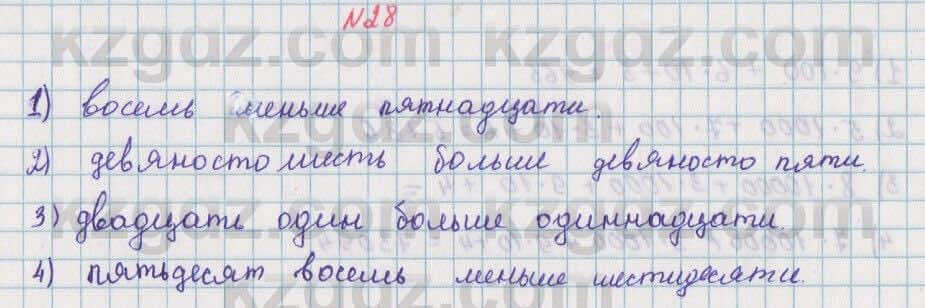 №28
1) восемь меньше пятнадцати.
2) девяносто шесть больше девяносто пяти.
3) двадцать один больше одиннадцати.
4) пятьдесят восемь меньше шестидесяти.
kzgdz.com